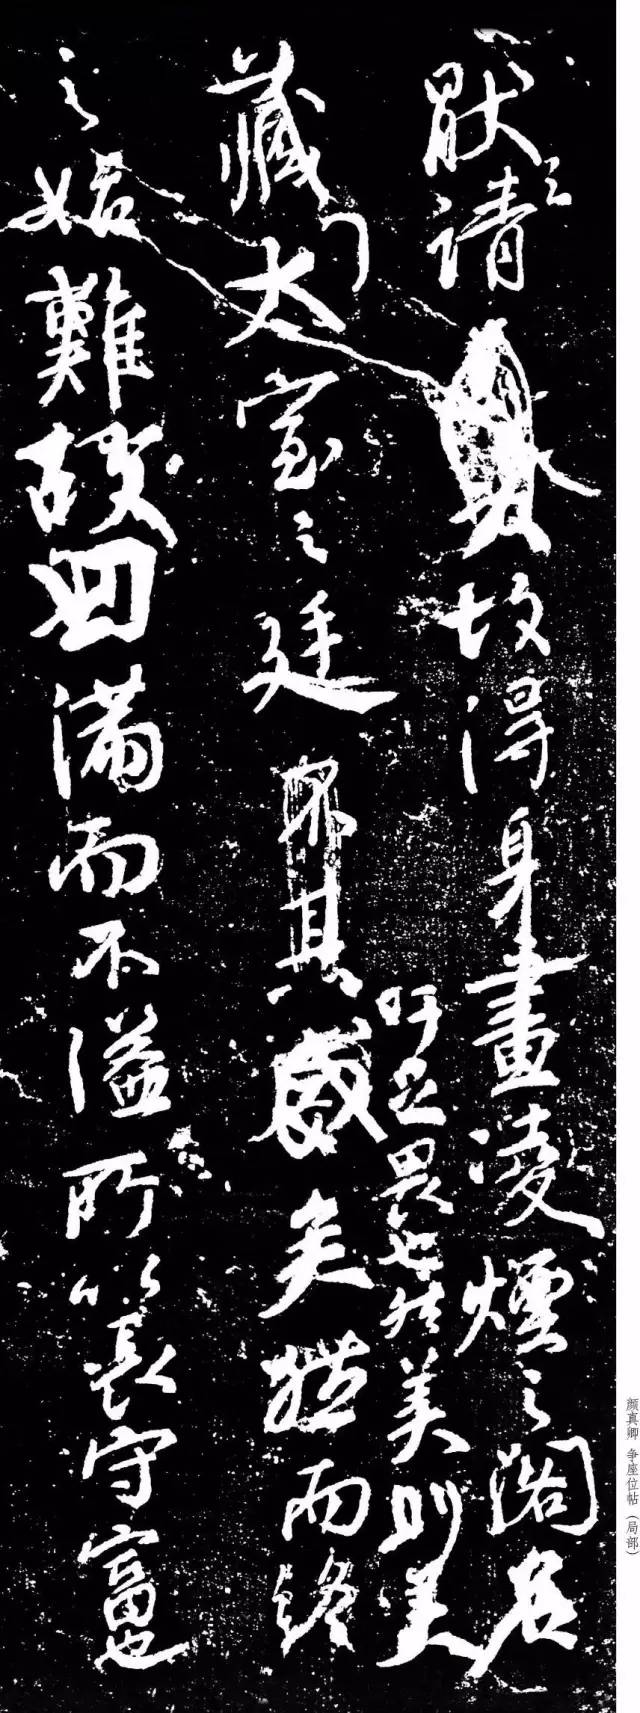 猒之請故得身畫凌煙之閣名
吁足畏也然美則美
藏太室之廷不其盛矣然而終
之始難故曰滿而不溢所以長守富也
颜真卿 争座位帖（局部）